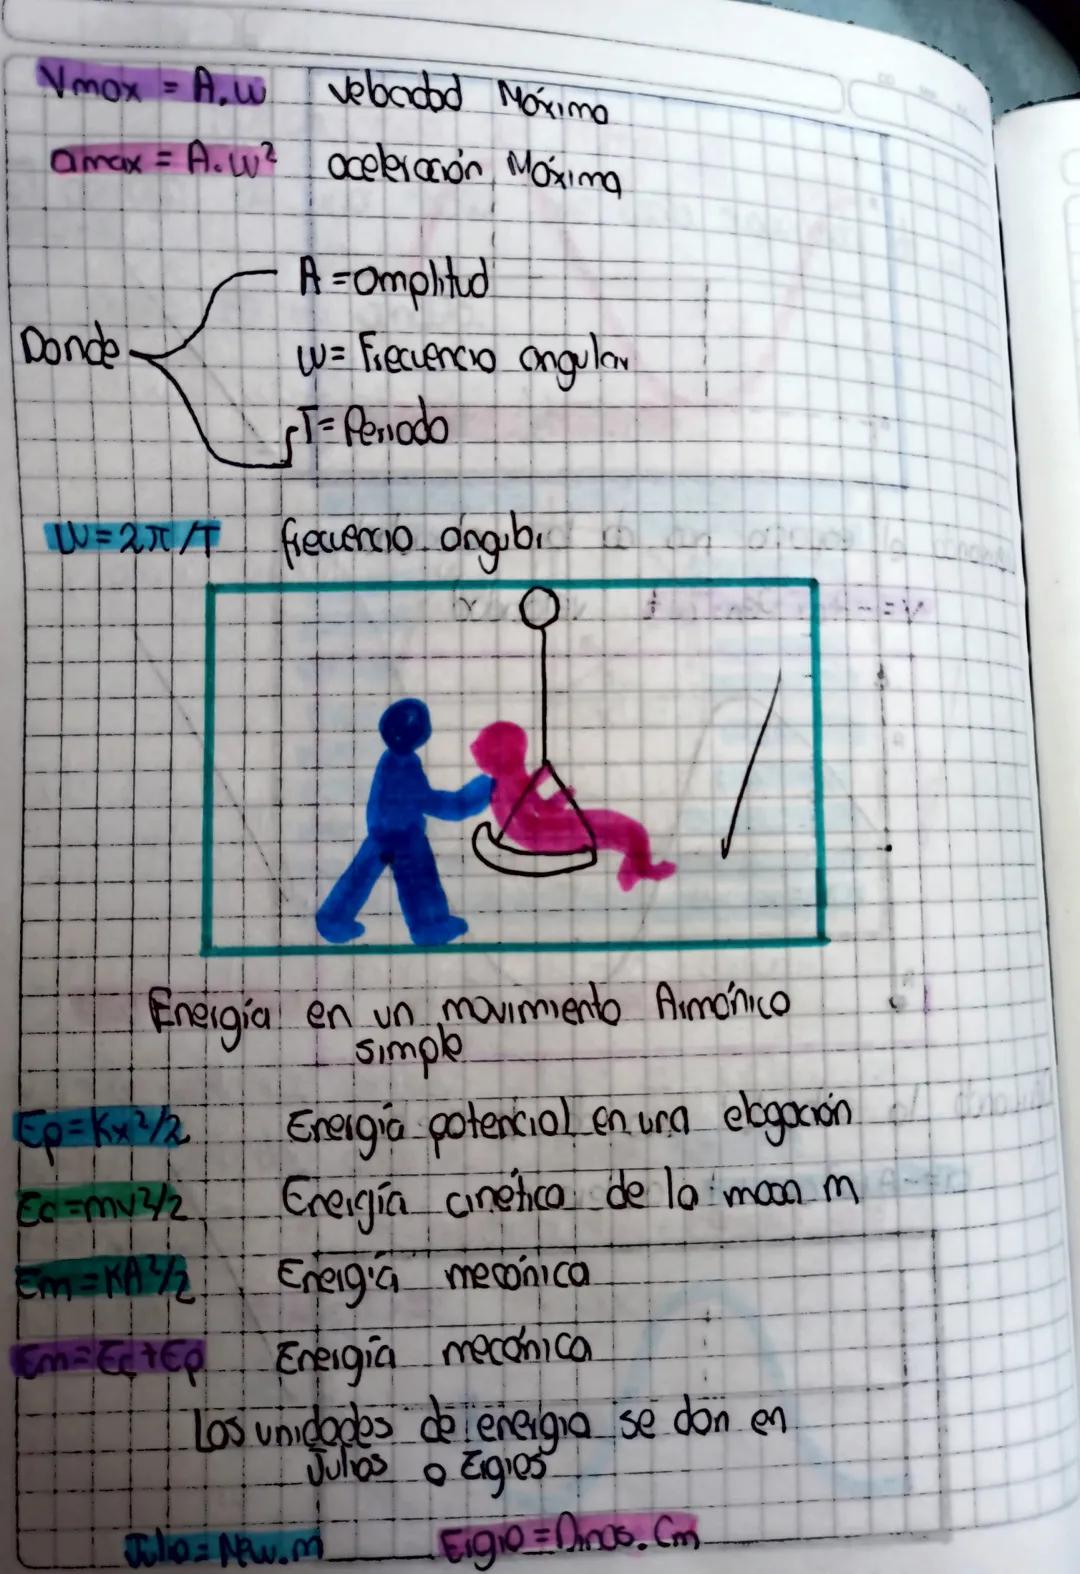 Vmax = A.W Velocidad Máxima
amax = A.W² aceleración Máxima
A = amplitud
Donde W = Frecuencia angular
T = Periodo
W = 2π/T frecuencia angular
Energía en un movimiento Armónico
simple
Ep = Kx²/2 Energía potencial en una elogación
Ec = mv²/2 Energía cinética de la masa m
Em = KA²/2 Energía mecánica
Em = Ec + Ep Energía mecánica
Las unidades de energia se dan en
Julios o Ergios
Julio = New.m Ergio = Dinas.Cm